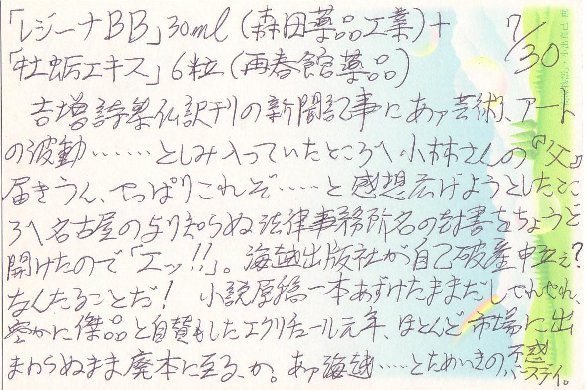 「レジーナBB」30ml（森田薬品工業）＋
7/30
「牡蛎エキス」6粒（再春館薬品）
吉増詩集仏訳刊の新聞記事にあァ芸術、アート
の波動……としみ入っていたところへ小林さんの『父』
届きうん、やっぱりこれぞ……と感想広げようとしたとこ
ろへ名古屋のより知らぬ法律事務所名の封書をちょうど
開けたので「エッ!!」。海越出版社が自己破産申立て?
なんたることだ! 小説原稿一本あずけたままだし、やれやれ、
密かに傑品と自賛もしたエクリチュール元年、ほとんど市場に出
まわらぬまま廃本に至る、か。あァ海越……とためいきの、不惑
バースデイ。